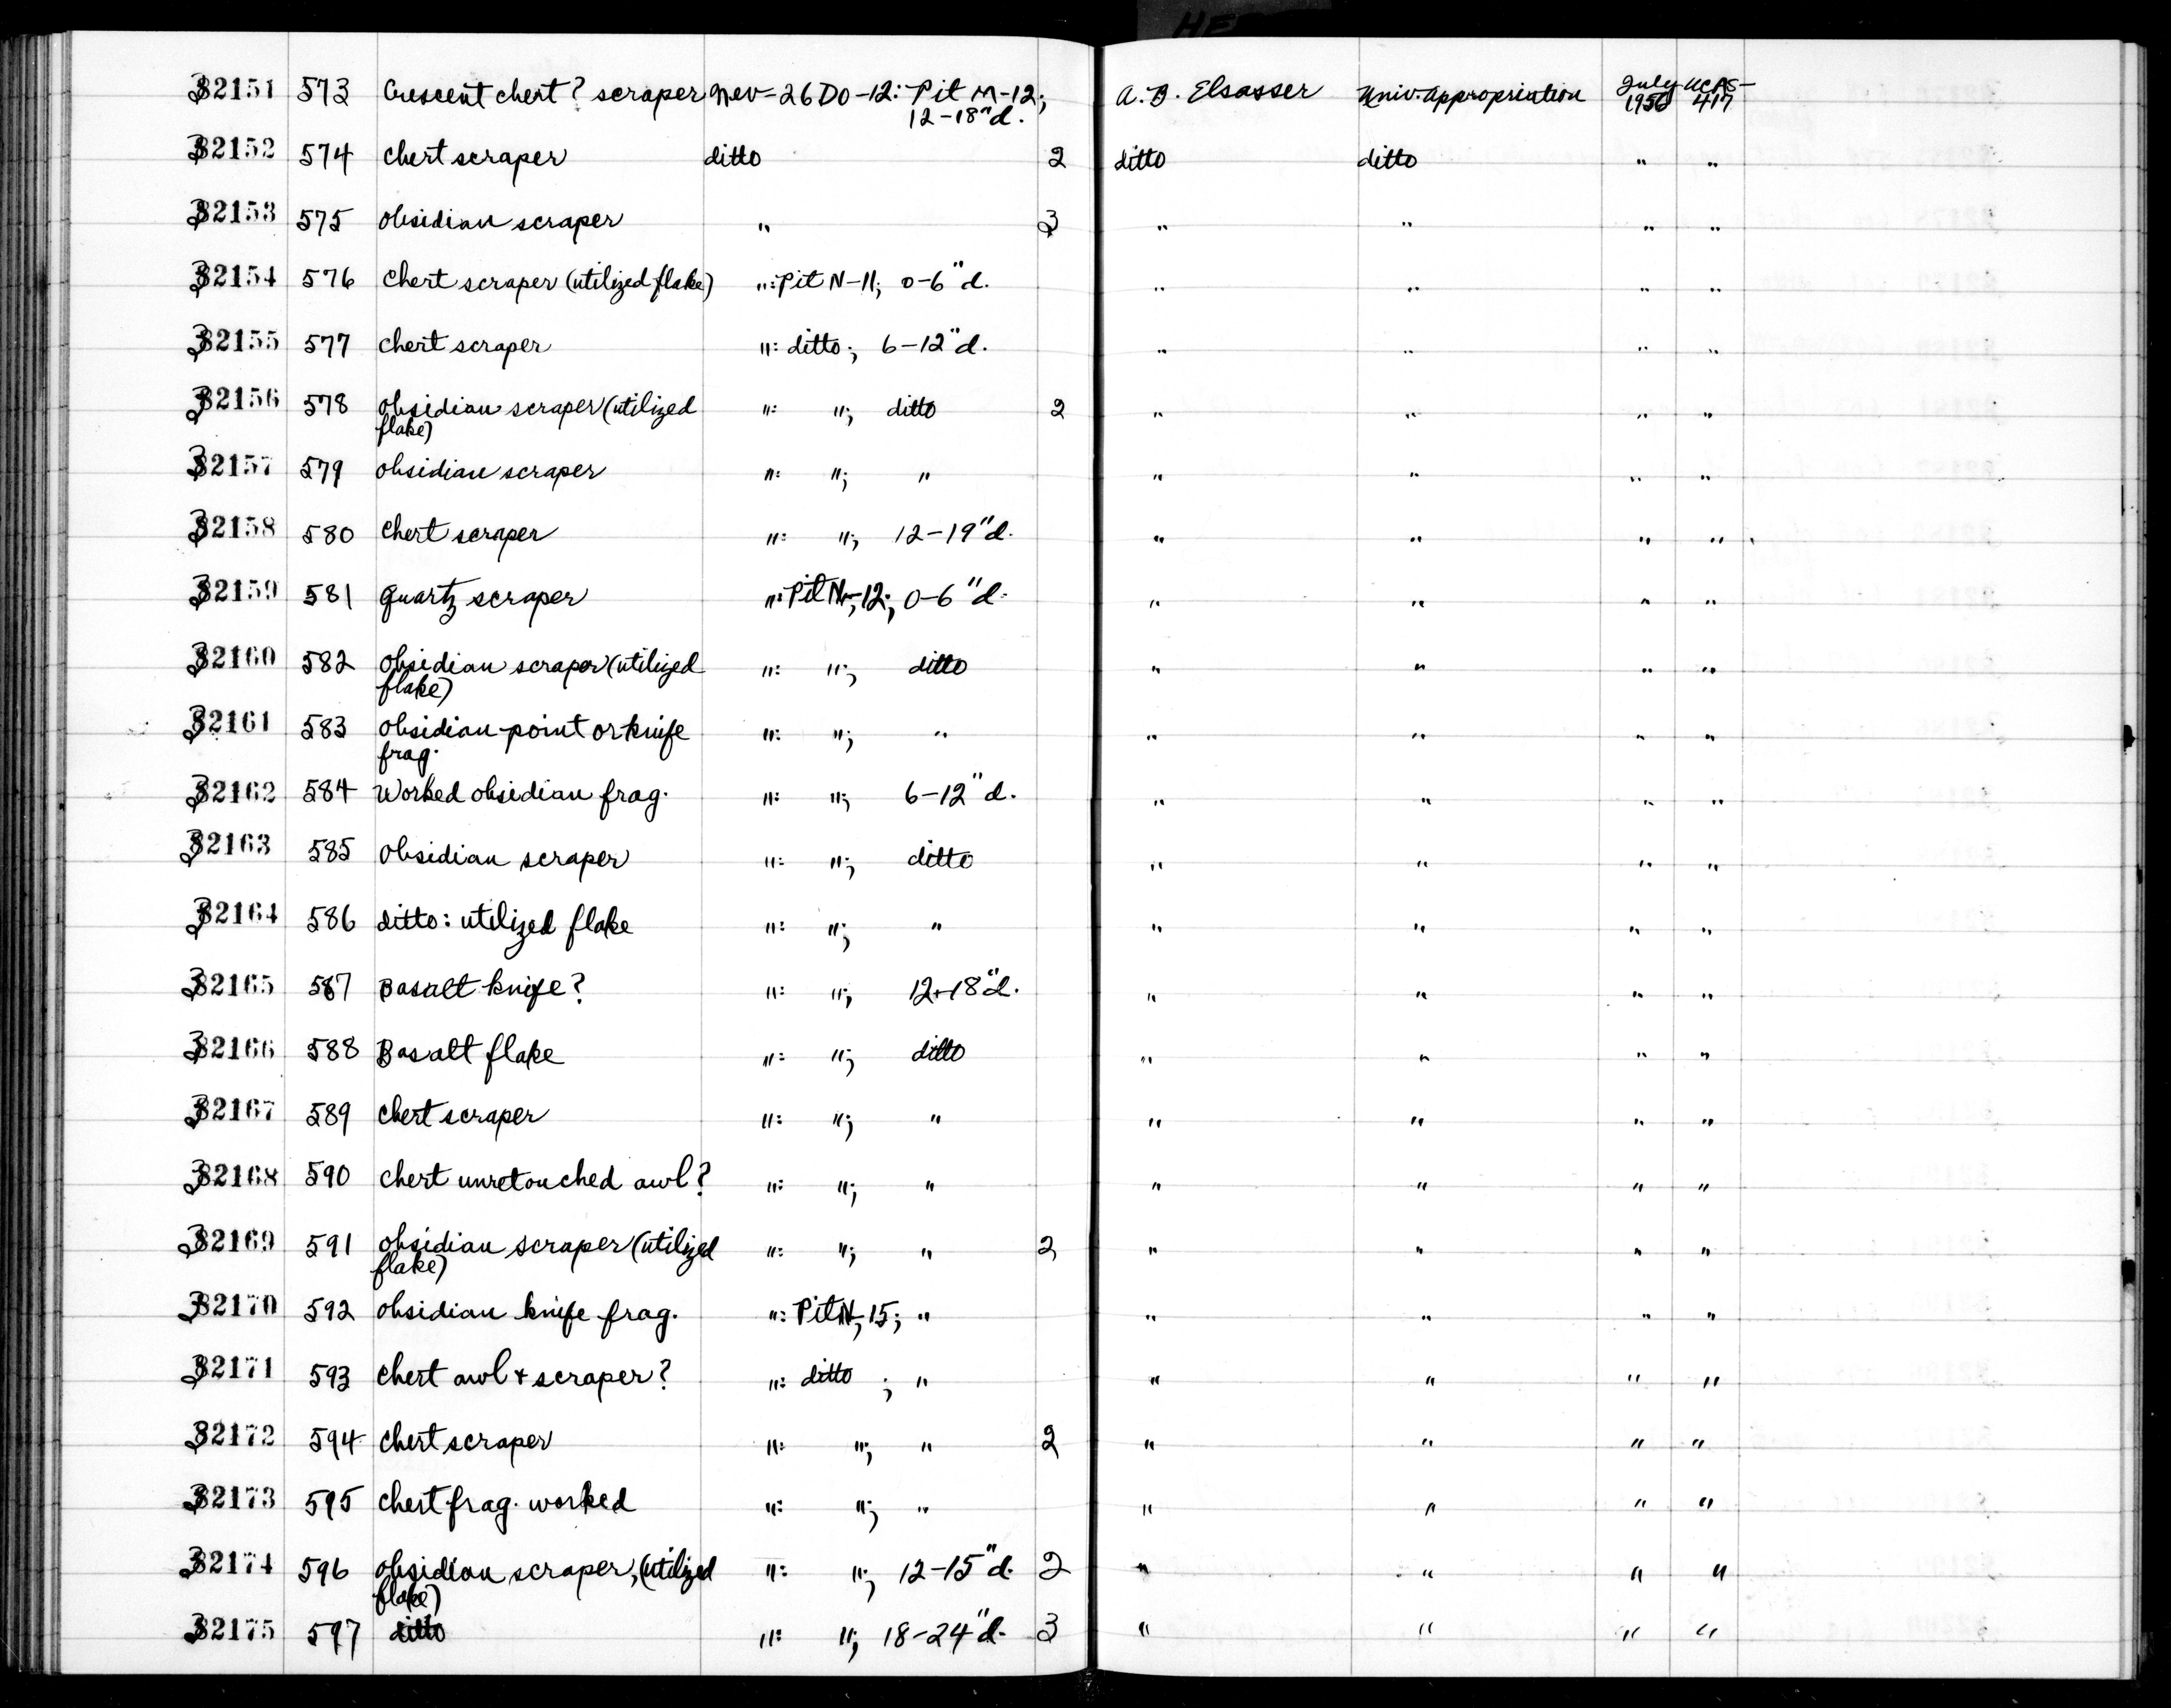 HF
32151 573 Crescent chert? scraper Nev-26Do-12: Pit M-12; A. B. Elsasser Univ. Appropriation July UCAS-
12-18"d. 1956 417
32152 574 chert scraper ditto 2 ditto ditto " "
32153 575 obsidian scraper " 3 " " " "
32154 576 chert scraper (utilized flake) ": Pit N-11; 0-6"d. " " " "
32155 577 chert scraper ": ditto; 6-12"d. " " " "
32156 578 obsidian scraper (utilized ": "; ditto 2 " " " "
flake)
32157 579 obsidian scraper ": "; " " " " "
32158 580 chert scraper ": "; 12-19"d. " " " "
32159 581 quartz scraper ": Pit N-12; 0-6"d. " " " "
32160 582 obsidian scraper (utilized ": "; ditto " " " "
flake)
32161 583 obsidian point or knife ": "; " " " " "
frag.
32162 584 Worked obsidian frag. ": "; 6-12"d. " " " "
32163 585 obsidian scraper ": "; ditto " " " "
32164 586 ditto: utilized flake ": "; " " " " "
32165 587 Basalt knife? ": "; 12-18"d. " " " "
32166 588 Basalt flake ": "; ditto " " " "
32167 589 chert scraper ": "; " " " " "
32168 590 chert unretouched awl? ": "; " " " " "
32169 591 obsidian scraper (utilized ": "; " 2 " " " "
flake)
32170 592 obsidian knife frag. ": Pit N-15; " " " " "
32171 593 chert awl + scraper? ": ditto ; " " " " "
32172 594 chert scraper ": "; " 2 " " " "
32173 595 chert frag. worked ": "; " " " " "
32174 596 obsidian scraper, (utilized ": "; 12-15"d. 2 " " " "
flake)
32175 597 ditto ": "; 18-24"d. 3 " " " "